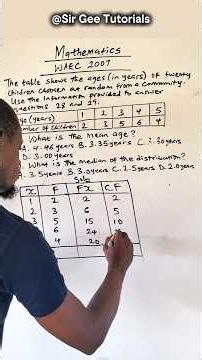 @Sir Gee Tutorials
Mathematics
WAEC 2007
The table shows the ages (in years) of twenty
children chosen at random from a community.
Use the information provided to answer
questions 28 and 29.
Age (years) 1 2 3 4 5
Number of children 2 3 5 6 4
What is the mean age?
A. 4.46 years B. 3.35 years C. 3.30 years
D. 3.00 years
What is the median of the distribution?
A. 3.5 years B. 3.0 years C. 2.5 years D. 2.0 years
Soln
x F Fx C.F
1 2 2 2
2 3 6 5
3 5 15 10
6 24
4 20